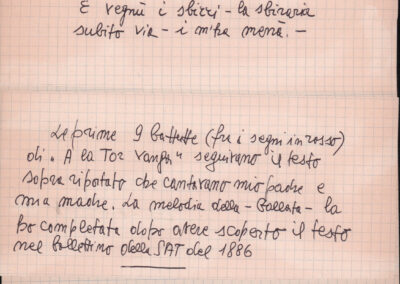 E vegnù i sbirri - la sbiraria
subito via - i m'ha menà. -
Le prime 9 battute (fra i segni in rosso)
di "A la Tor Vanga" seguivano il testo
sopra riportato che cantavano mio padre e
mia madre. La melodia della - Ballata - la
ho completata dopo avere scoperto il testo
nel bollettino della SAT del 1886